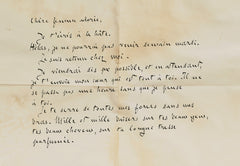 Chère femme adorée,
Je t'écris à la hâte.
Hélas, je ne pourrai pas venir demain mardi.
Je suis retenu chez moi.
Je viendrai dès que possible, et en attendant,
je t'envoie mon cœur qui est tout à toi. Il ne
se passe pas une heure sans que je pense
à toi.
Je te serre de toutes mes forces dans mes
bras. Mille et mille baisers sur tes beaux yeux,
tes beaux cheveux, sur ta longue tresse
parfumée.